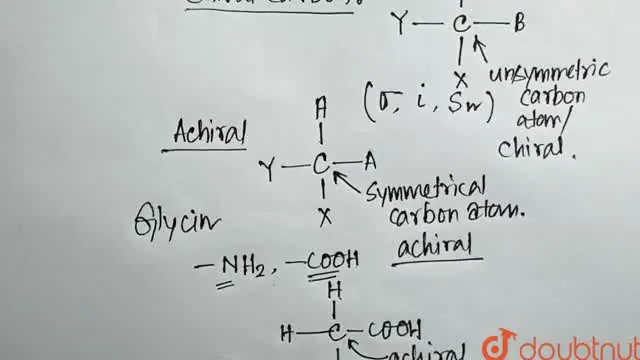 Y — C — B
X
unsymmetric
carbon
atom/
chiral.
(σ, i, Sn)
Achiral
A
Y — C — A
X
Symmetrical
carbon atom.
achiral
Glycin
— NH₂, — COOH
H
H — C — COOH
achiral
doubtnut